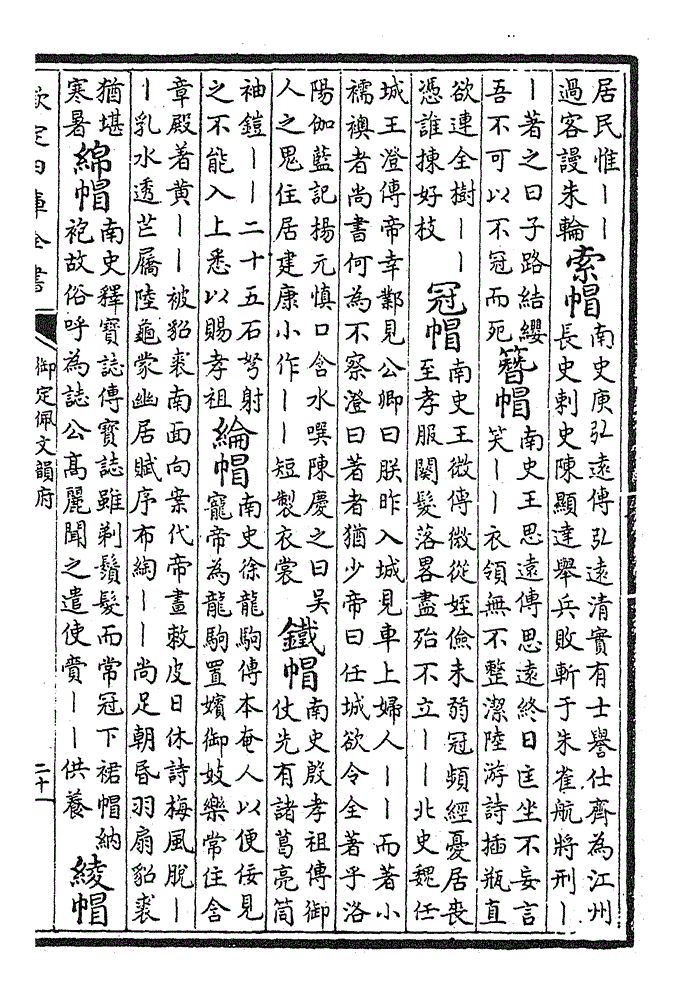 居民惟丨丨過客謾朱輪 索帽 南史庾弘遠傳弘遠清實有士譽仕齊為江州長史刺史陳顯達舉兵敗斬于朱雀航將刑丨
丨著之曰子路結纓吾不可以不冠而死 簪帽 南史王思遠傳思遠終日匡坐不妄言笑丨丨衣領無不整潔陸游詩插瓶直
欲連全樹丨丨憑誰揀好枝 冠帽 南史王微傳微從姪儉未弱冠頻經憂居喪至孝服闋髮落畧盡殆不立丨丨北史魏任
城王澄傳帝幸鄴見公卿曰朕昨入城見車上婦人丨丨而著小襦襖者尚書何為不察澄曰著者猶少帝曰任城欲令全著乎洛
陽伽藍記楊元慎口含水噀陳慶之曰吳人之鬼住居建康小作丨丨短製衣裳 鐵帽 南史殷孝祖傳御仗先有諸葛亮筒
袖鎧丨丨二十五石弩射之不能入上悉以賜孝祖 綸帽 南史徐龍駒傳本奄人以便佞見寵帝為龍駒置嬪御妓樂常住含
章殿著黄丨丨被貂裘南面向案代帝畫敕皮日休詩梅風脫丨丨乳水透芒屩陸龜蒙幽居賦序布綯丨丨尚足朝昏羽扇貂裘
猶堪寒暑 綿帽 南史釋寶誌傳寶誌雖剃鬚髮而常冠下裙帽納袍故俗呼為誌公高麗聞之遣使賫丨丨供養 綾帽
欽定四庫全書 御定佩文韻府 二十一